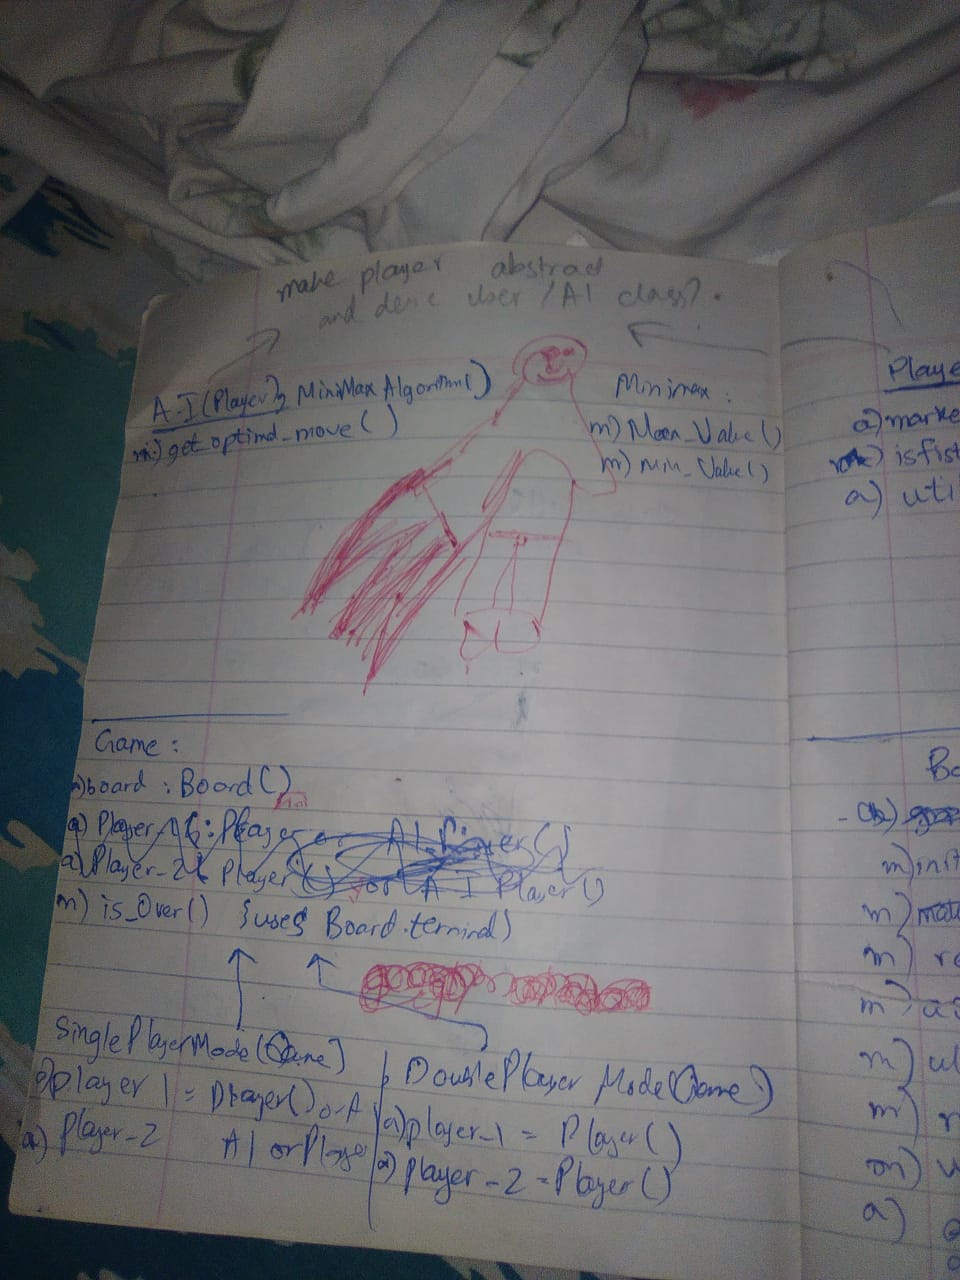 make player abstract
and derive User / AI class?.
A.I (Player), MiniMax Algorithm()
m) get_optimal_move()
Minimax :
m) Max_Value()
m) Min_Value()
Playe
a) marke
isfist
a) uti
Game :
a) board : Board()
a) Player
a) Player-2 : Player() or A I Player()
m) is_Over() {uses Board.terminal)
SinglePlayerMode(Game)
a) player 1 = Player() or A
a) Player-2 AI or Playe
DoublePlayer Mode(Game)
a) player-1 = Player()
a) Player-2 = Player()
Bo
m) init
m)
m) re
m) as
m) ul
m) r
m) u
a)